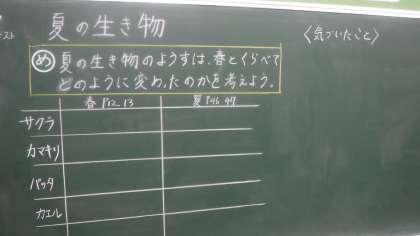 夏の生き物
〈気づいたこと〉
め 夏の生き物のようすは、春とくらべて
どのように変わったのかを考えよう。
春 P12.13
夏
サクラ
カマキリ
バッタ
カエル